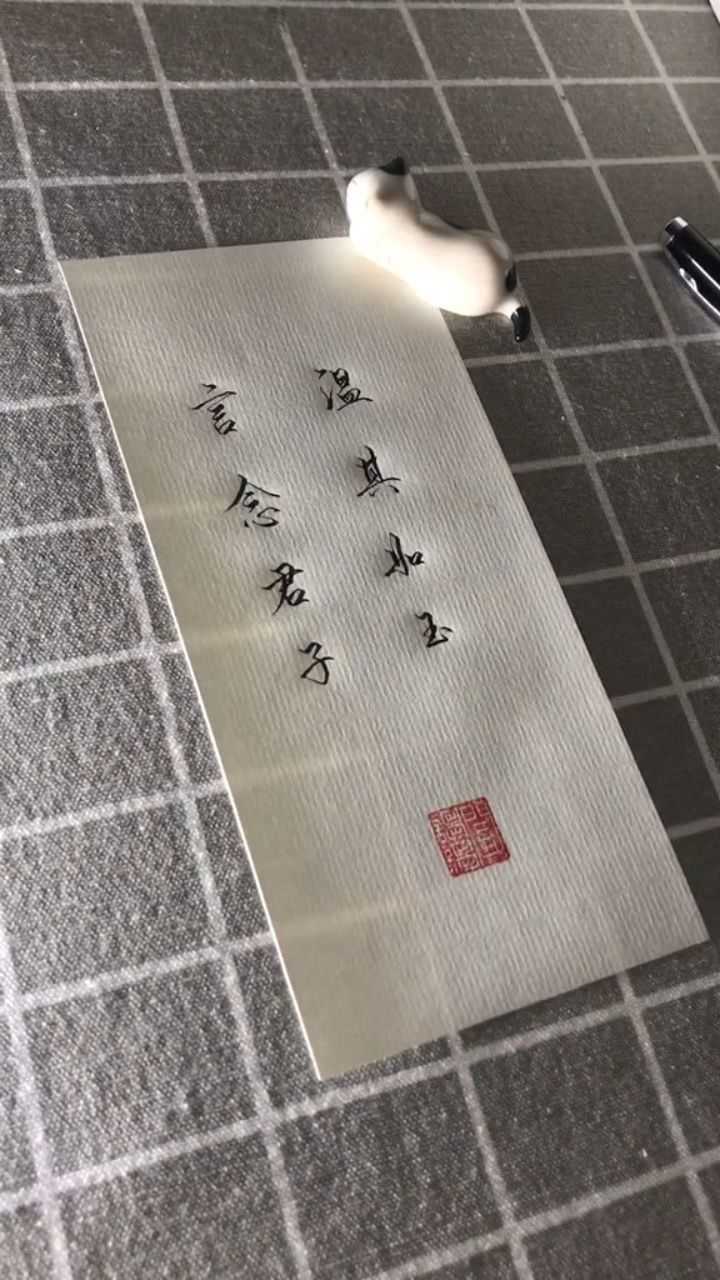 温其如玉
言念君子